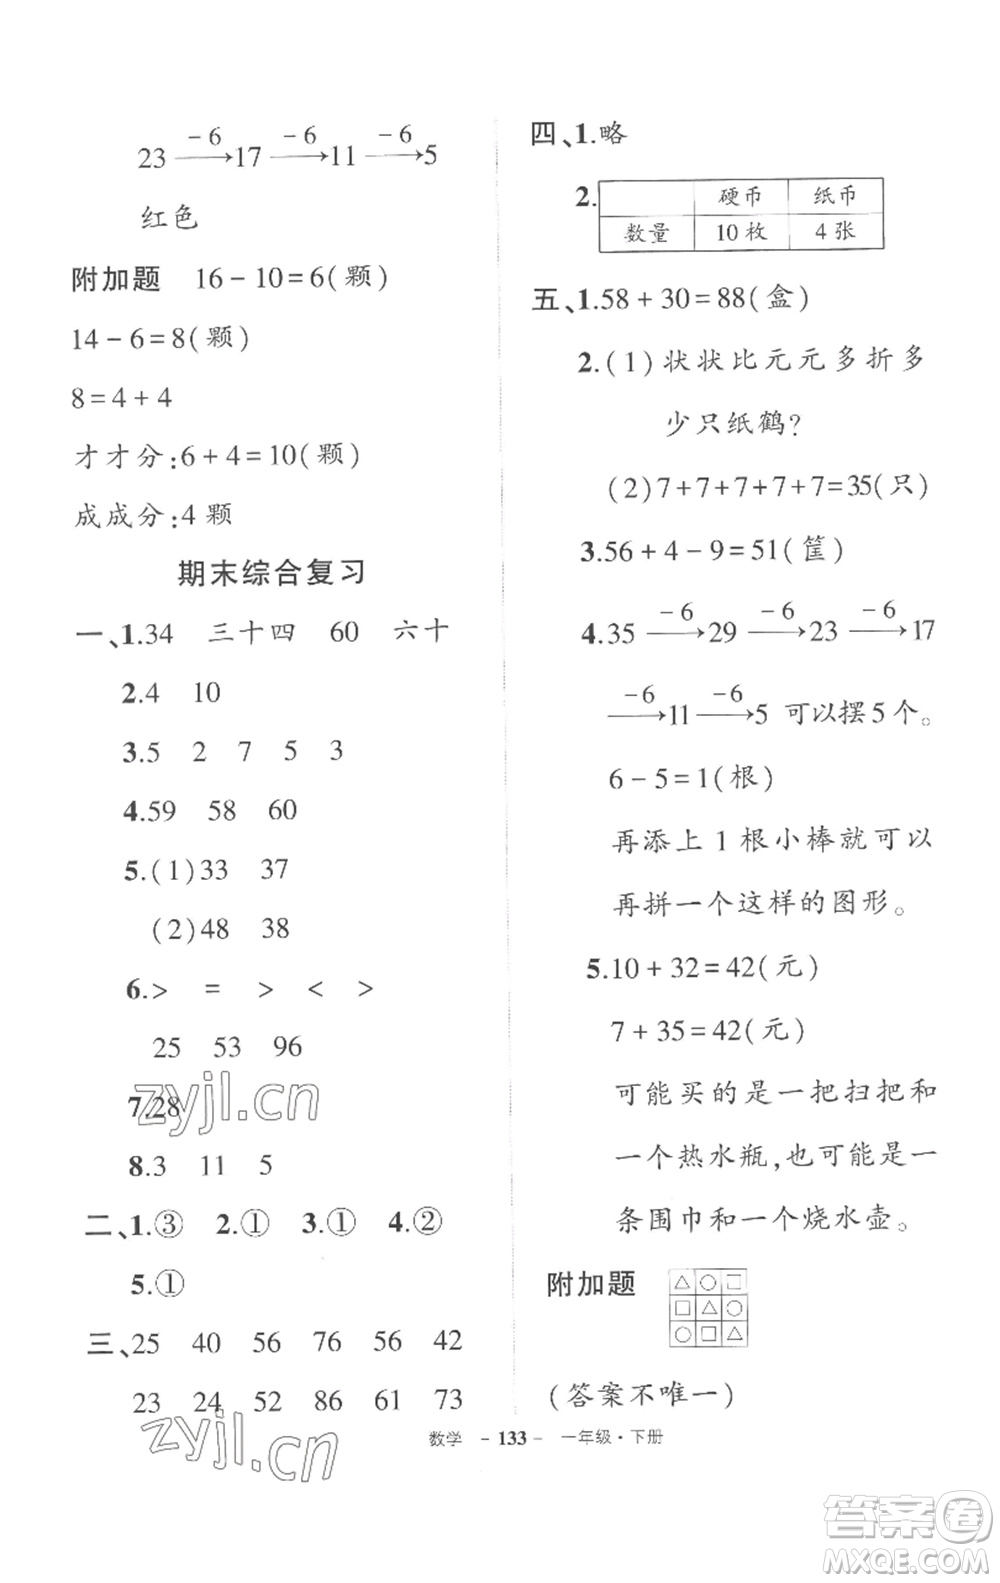 23 —−6→ 17 —−6→ 11 —−6→ 5
红色
附加题 16-10=6(颗)
14-6=8(颗)
8=4+4
才才分:6+4=10(颗)
成成分:4颗
期末综合复习
一、1.34 三十四 60 六十
2.4 10
3.5 2 7 5 3
4.59 58 60
5.(1)33 37
(2)48 38
6.> = > < >
25 53 96
7.28
8.3 11 5
二、1.③ 2.① 3.① 4.②
5.①
三、25 40 56 76 56 42
23 24 52 86 61 73
四、1.略
2. 硬币 纸币
数量 10枚 4张
五、1.58+30=88(盒)
2.(1)状状比元元多折多
少只纸鹤?
(2)7+7+7+7+7=35(只)
3.56+4-9=51(筐)
4.35 —−6→ 29 —−6→ 23 —−6→ 17
—−6→ 11 —−6→ 5 可以摆5个。
6-5=1(根)
再添上1根小棒就可以
再拼一个这样的图形。
5.10+32=42(元)
7+35=42(元)
可能买的是一把扫把和
一个热水瓶,也可能是一
条围巾和一个烧水壶。
附加题 △ ○ □
□ △ ○
○ □ △
(答案不唯一)
数学 -133- 一年级·下册
zyjl.cn
zyjl.cn
答案卷
MXQE.COM